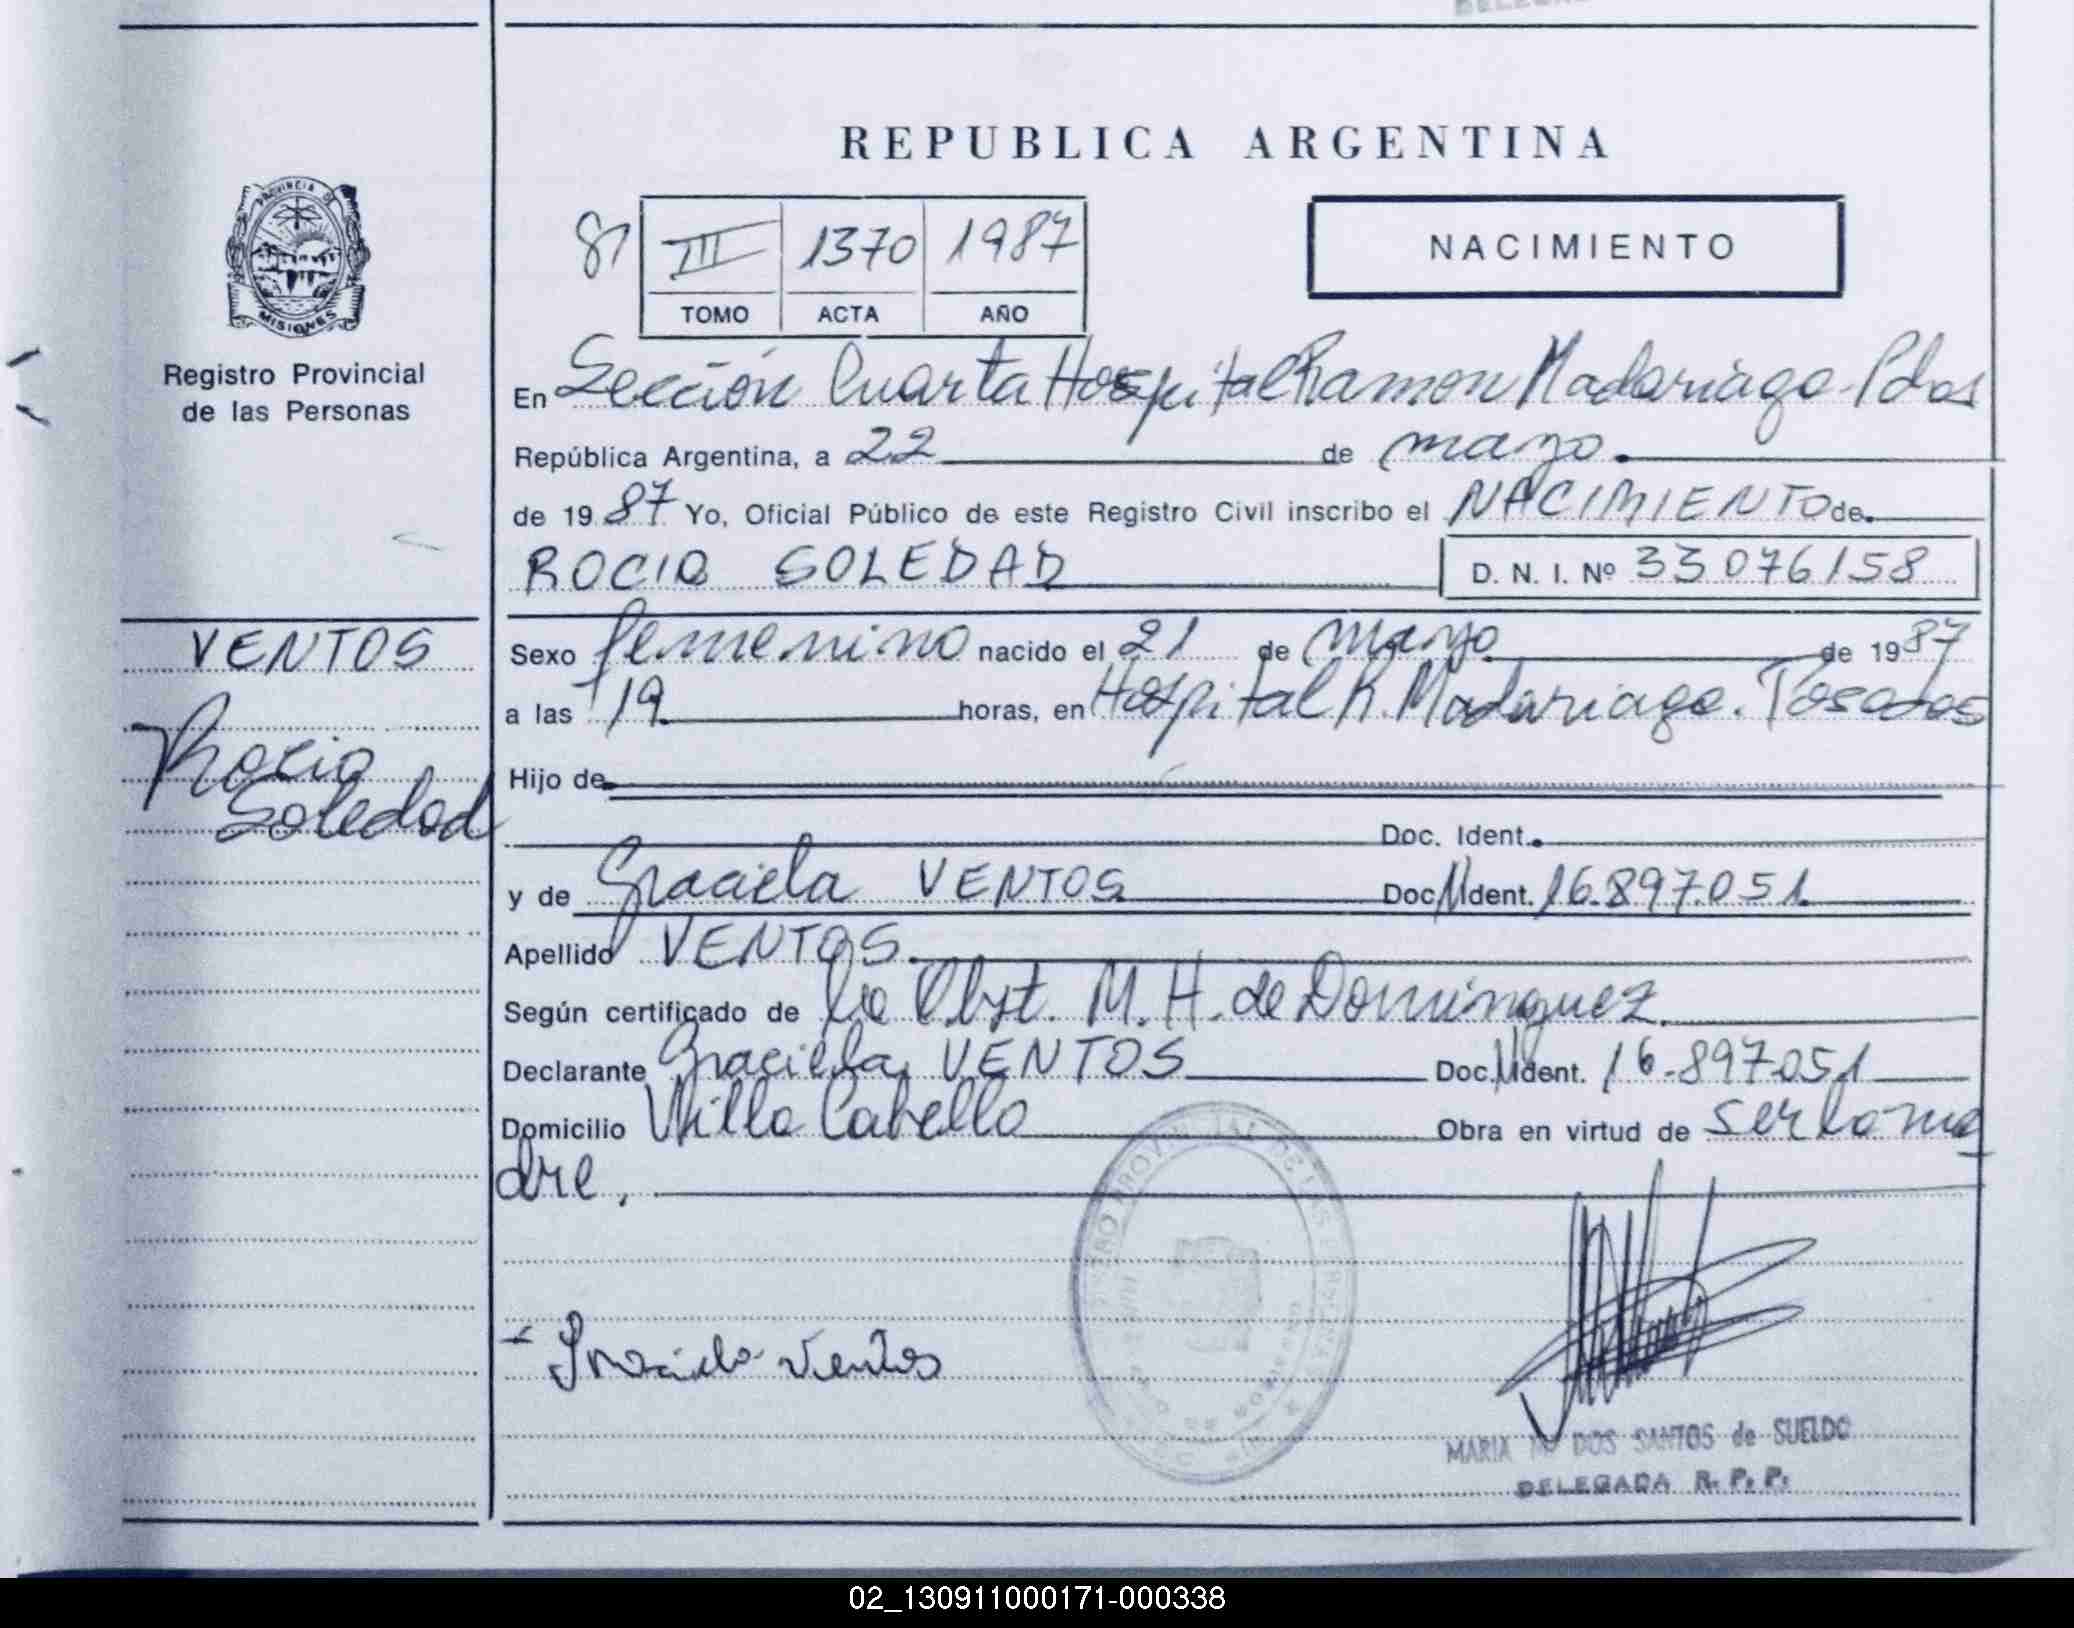 REPUBLICA ARGENTINA
PROVINCIA DE
MISIONES
Registro Provincial
de las Personas
87
III 1370 1987
TOMO ACTA AÑO
NACIMIENTO
En Sección Cuarta Hospital Ramon Madariaga - Pdas
República Argentina, a 22 de marzo.
de 1987 Yo, Oficial Público de este Registro Civil inscribo el NACIMIENTO de
ROCIO SOLEDAD D. N. I. Nº 33076158
VENTOS
Rocio
Soledad
Sexo femenino nacido el 21 de marzo de 1987
a las 19 horas, en Hospital R. Madariaga. Posadas
Hijo de
Doc. Ident.
y de Graciela VENTOS Doc. Ident. 16.897.051
Apellido VENTOS
Según certificado de la Obst. M. H. de Dominguez
Declarante Graciela VENTOS Doc. Ident. 16.897051
Domicilio Villa Cabello Obra en virtud de ser la ma
dre,
Graciela Ventos
MARIA DOS SANTOS de SUELDO
DELEGADA R. P. P.
02_130911000171-000338